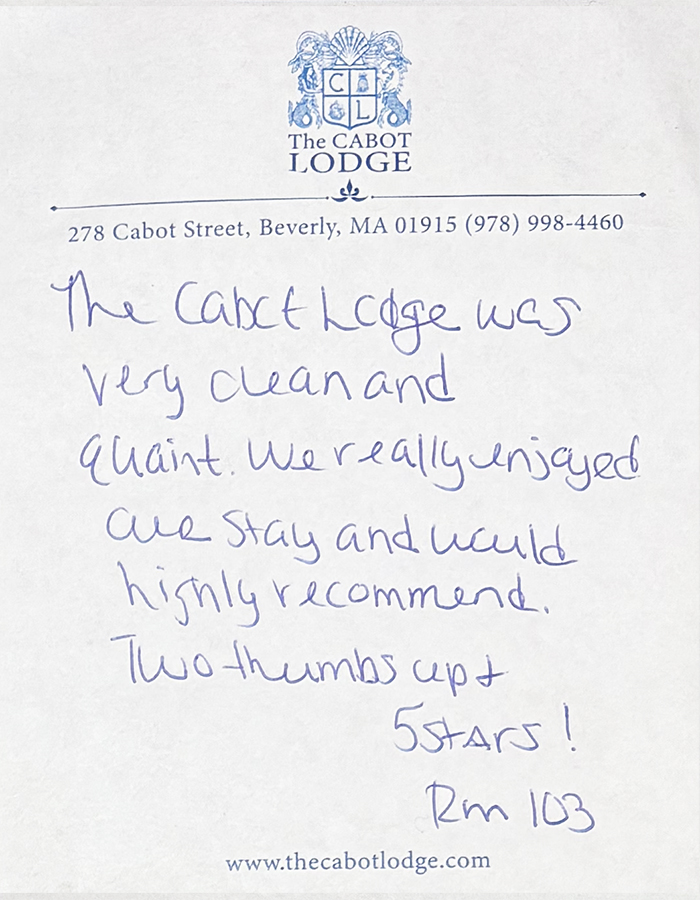 C
L
The CABOT
LODGE
278 Cabot Street, Beverly, MA 01915 (978) 998-4460
The Cabot Lodge was
very clean and
quaint. We really enjoyed
our stay and would
highly recommend.
Two thumbs up +
5 stars!
Rm 103
www.thecabotlodge.com